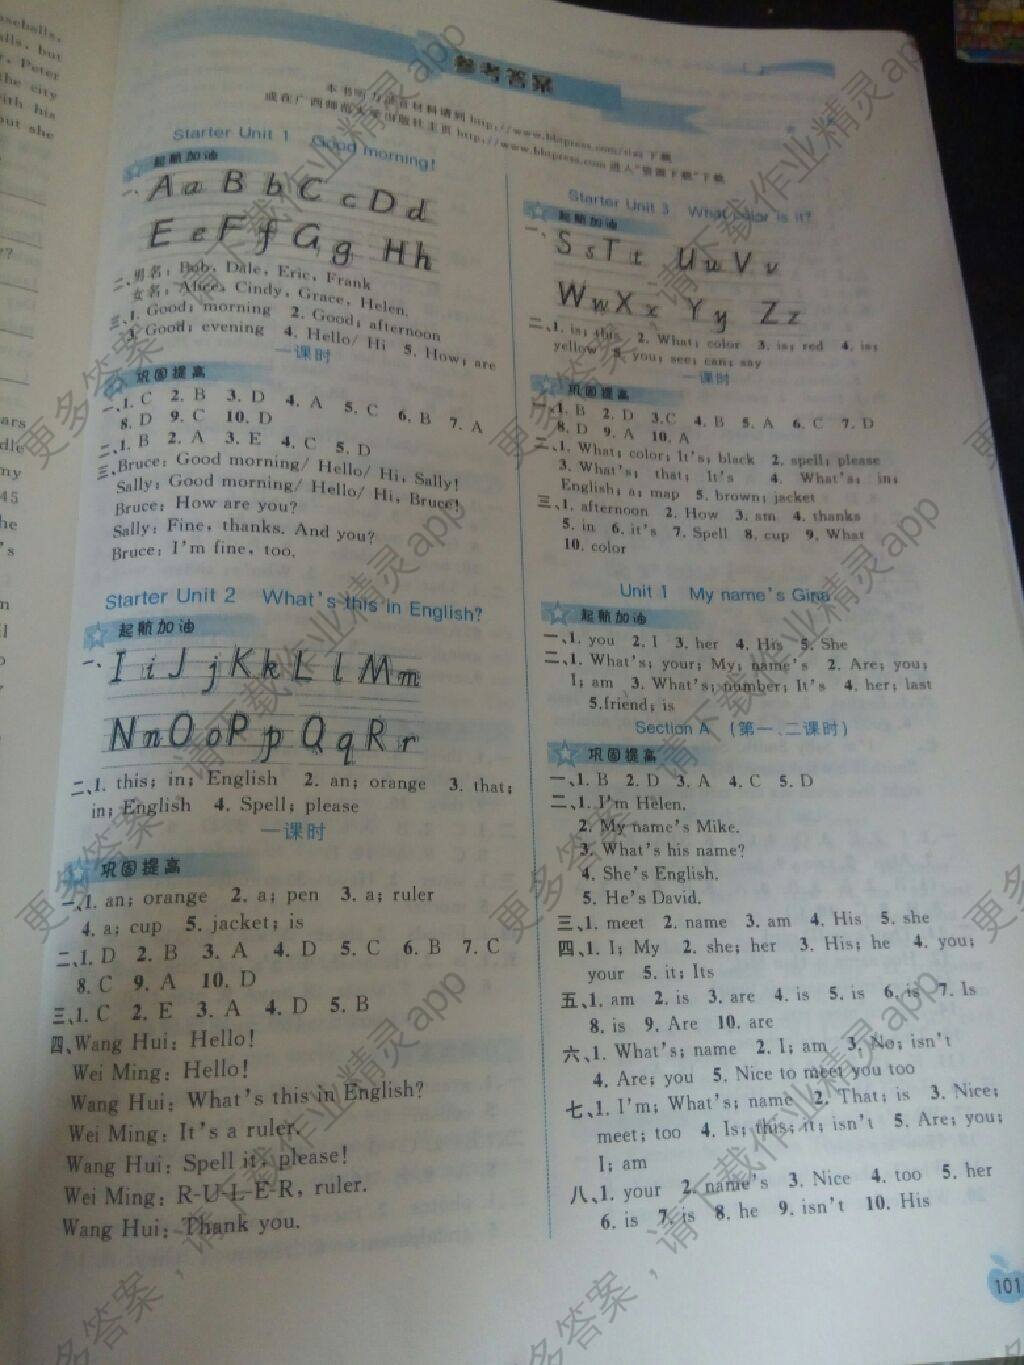 aseballs,
alls, but
, Peter
the city
with his
but she
??
ars
dle
my
45
he
's
参考答案
本书听力录音材料请到 http://www.bbtpress.com/zisu 下载
或在广西师范大学出版社主页 http://www.bbtpress.com 进入“资源下载”下载
Starter Unit 1 Good morning!
起航加油
一、Aa Bb Cc Dd
Ee Ff Gg Hh
二、男名：Bob, Dale, Eric, Frank
女名：Alice, Cindy, Grace, Helen.
三、1. Good; morning 2. Good; afternoon
3. Good; evening 4. Hello/ Hi 5. How; are
一课时
巩固提高
一、1. C 2. B 3. D 4. A 5. C 6. B 7. A
8. D 9. C 10. D
二、1. B 2. A 3. E 4. C 5. D
三、Bruce: Good morning/ Hello/ Hi, Sally!
Sally: Good morning/ Hello/ Hi, Bruce!
Bruce: How are you?
Sally: Fine, thanks. And you?
Bruce: I'm fine, too.
Starter Unit 2 What's this in English?
起航加油
一、Ii Jj Kk Ll Mm
Nn Oo Pp Qq Rr
二、1. this; in; English 2. an; orange 3. that;
in; English 4. Spell; please
一课时
巩固提高
一、1. an; orange 2. a; pen 3. a; ruler
4. a; cup 5. jacket; is
二、1. D 2. B 3. A 4. D 5. C 6. B 7. C
8. C 9. A 10. D
三、1. C 2. E 3. A 4. D 5. B
四、Wang Hui: Hello!
Wei Ming: Hello!
Wang Hui: What's this in English?
Wei Ming: It's a ruler.
Wang Hui: Spell it, please!
Wei Ming: R-U-L-E-R, ruler.
Wang Hui: Thank you.
Starter Unit 3 What color is it?
起航加油
一、Ss Tt Uu Vv
Ww Xx Yy Zz
二、1. is; this 2. What; color 3. is; red 4. is;
yellow 5. you; see; can; say
一课时
巩固提高
一、1. B 2. D 3. C 4. B 5. A 6. C 7. D
8. D 9. A 10. A
二、1. What; color; It's; black 2. spell; please
3. What's; that; It's 4. What's; in;
English; a; map 5. brown; jacket
三、1. afternoon 2. How 3. am 4. thanks
5. in 6. it's 7. Spell 8. cup 9. What
10. color
Unit 1 My name's Gina
起航加油
一、1. you 2. I 3. her 4. His 5. She
二、1. What's; your; My; name's 2. Are; you;
I; am 3. What's; number; It's 4. her; last
5. friend; is
Section A (第一、二课时)
巩固提高
一、1. B 2. D 3. A 4. C 5. D
二、1. I'm Helen.
2. My name's Mike.
3. What's his name?
4. She's English.
5. He's David.
三、1. meet 2. name 3. am 4. His 5. she
四、1. I; My 2. she; her 3. His; he 4. you;
your 5. it; Its
五、1. am 2. is 3. are 4. is 5. is 6. is 7. Is
8. is 9. Are 10. are
六、1. What's; name 2. I; am 3. No; isn't
4. Are; you 5. Nice to meet you too
七、1. I'm; What's; name 2. That; is 3. Nice;
meet; too 4. Is; this; it; isn't 5. Are; you;
I; am
八、1. your 2. name's 3. Nice 4. too 5. her
6. is 7. is 8. he 9. isn't 10. His
101
更多答案，请下载作业精灵app